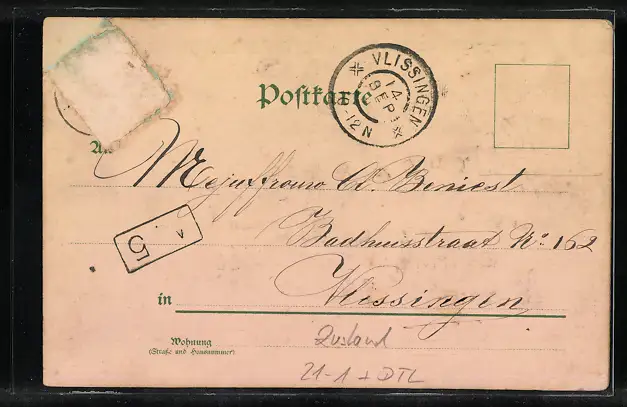 Postkarte
VLISSINGEN
14
SEP
8-12N
An
Mejuffrouw A. Beniest
Badhuisstraat No. 162
5
in Vlissingen
Wohnung
(Straße und Hausnummer)
Zustand
21-1 + DTL